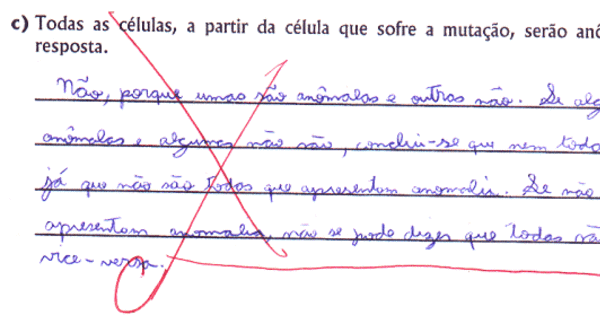 c) Todas as células, a partir da célula que sofre a mutação, serão anô
resposta.
Não, porque umas são anômalas e outras não. Se alg
anômalas e algumas não são, conclui-se que nem toda
já que não são todas que apresentam anomalia. Se não
apresentam anomalia, não se pode dizer que todas são
vice-versa.